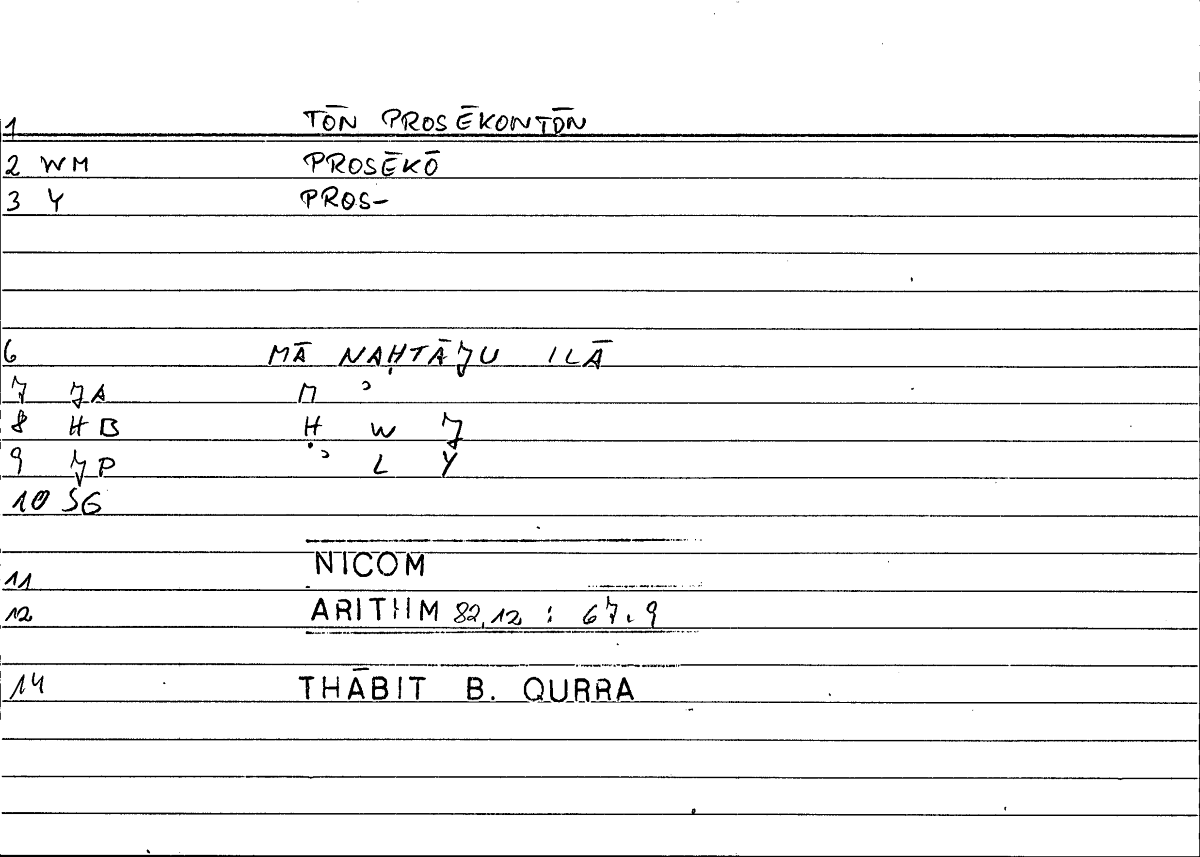 1 TŌN PROSĒKONTŌN
2 WM PROSĒKŌ
3 Y PROS-
6 MĀ NAḤTĀJU ILĀ
7 JA M ʾ
8 HB Ḥ W J
9 JP ʾ L Y
10 SG
11 NICOM
12 ARITHM 82,12 : 67.9
14 THĀBIT B. QURRA